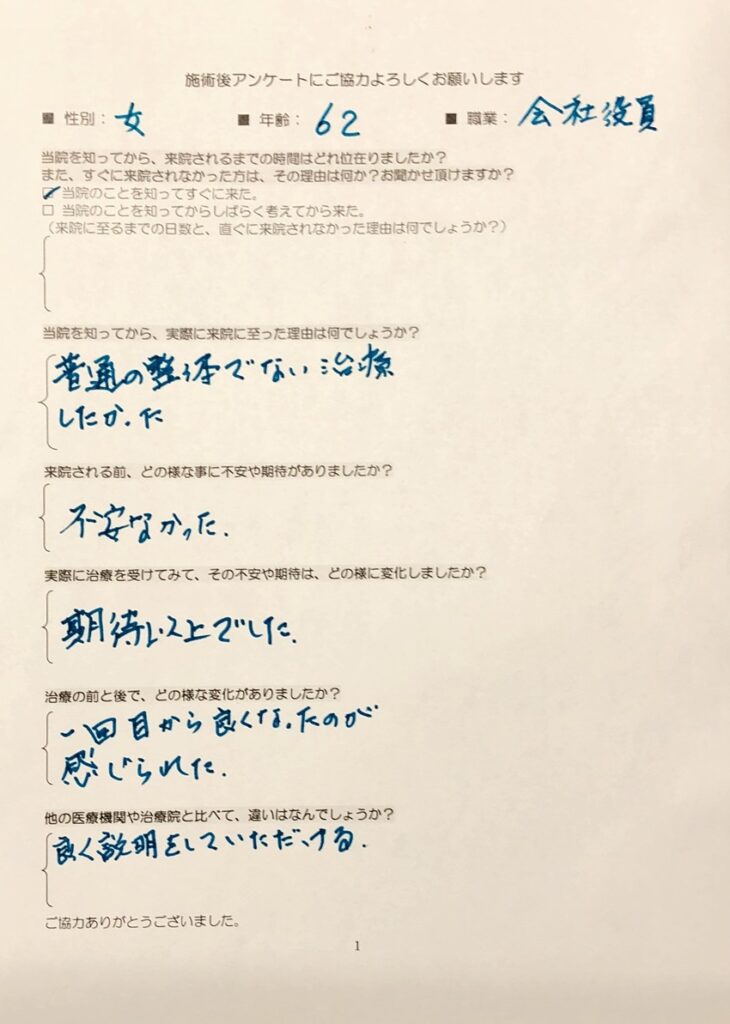 施術後アンケートにご協力よろしくお願いします
■ 性別：女 ■ 年齢：62 ■ 職業：会社役員
当院を知ってから、来院されるまでの時間はどれ位在りましたか？
また、すぐに来院されなかった方は、その理由は何か？お聞かせ頂けますか？
☑ 当院のことを知ってすぐに来た。
□ 当院のことを知ってからしばらく考えてから来た。
（来院に至るまでの日数と、直ぐに来院されなかった理由は何でしょうか？）
当院を知ってから、実際に来院に至った理由は何でしょうか？
普通の整体でない治療
したかった
来院される前、どの様な事に不安や期待がありましたか？
不安なかった.
実際に治療を受けてみて、その不安や期待は、どの様に変化しましたか？
期待以上でした.
治療の前と後で、どの様な変化がありましたか？
一回目から良くなったのが
感じられた.
他の医療機関や治療院と比べて、違いはなんでしょうか？
良く説明をしていただける.
ご協力ありがとうございました。
1